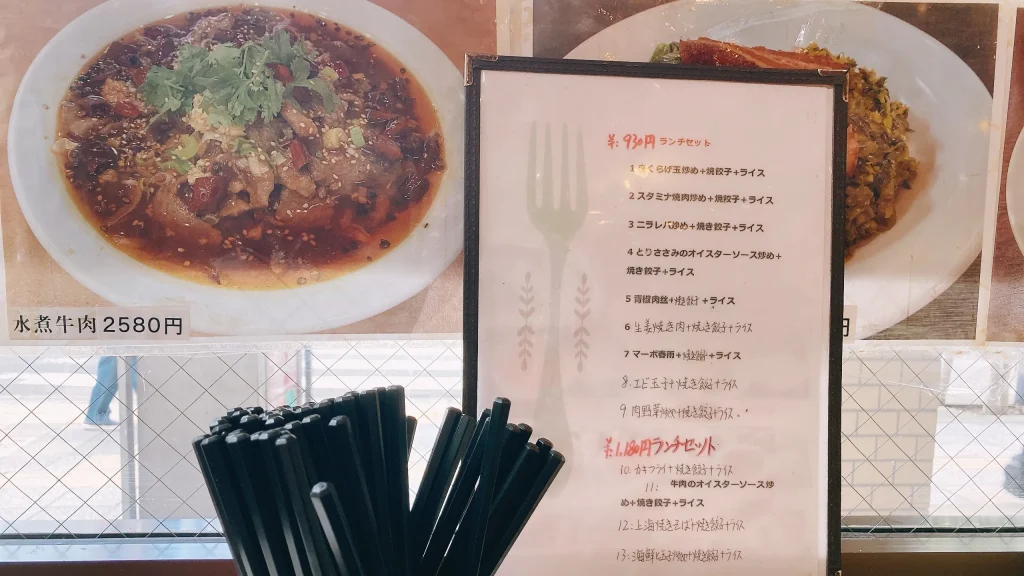 水煮牛肉 2580円
円
¥: 930円 ランチセット
1 きくらげ玉炒め+焼餃子+ライス
2 スタミナ焼肉炒め+焼餃子+ライス
3 ニラレバ炒め+焼き餃子+ライス
4 とりささみのオイスターソース炒め+
焼き餃子+ライス
5 青椒肉丝+焼き餃子+ライス
6 生姜焼き肉+焼き餃子+ライス
7 マーボ春雨+焼き餃子+ライス
8. エビ玉子+焼き餃子+ライス
9. 肉野菜炒め+焼き餃子+ライス。
¥:1.180円ランチセット
10. カキフライ+焼き餃子+ライス
11: 牛肉のオイスターソース炒
め+焼き餃子+ライス
12:上海焼きそば+焼き餃子+ライス
13:海鮮と玉子炒め+焼き餃子+ライス